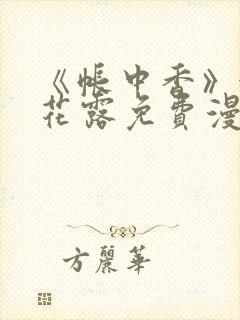 《帐中香》
花露免費漫
方麗華